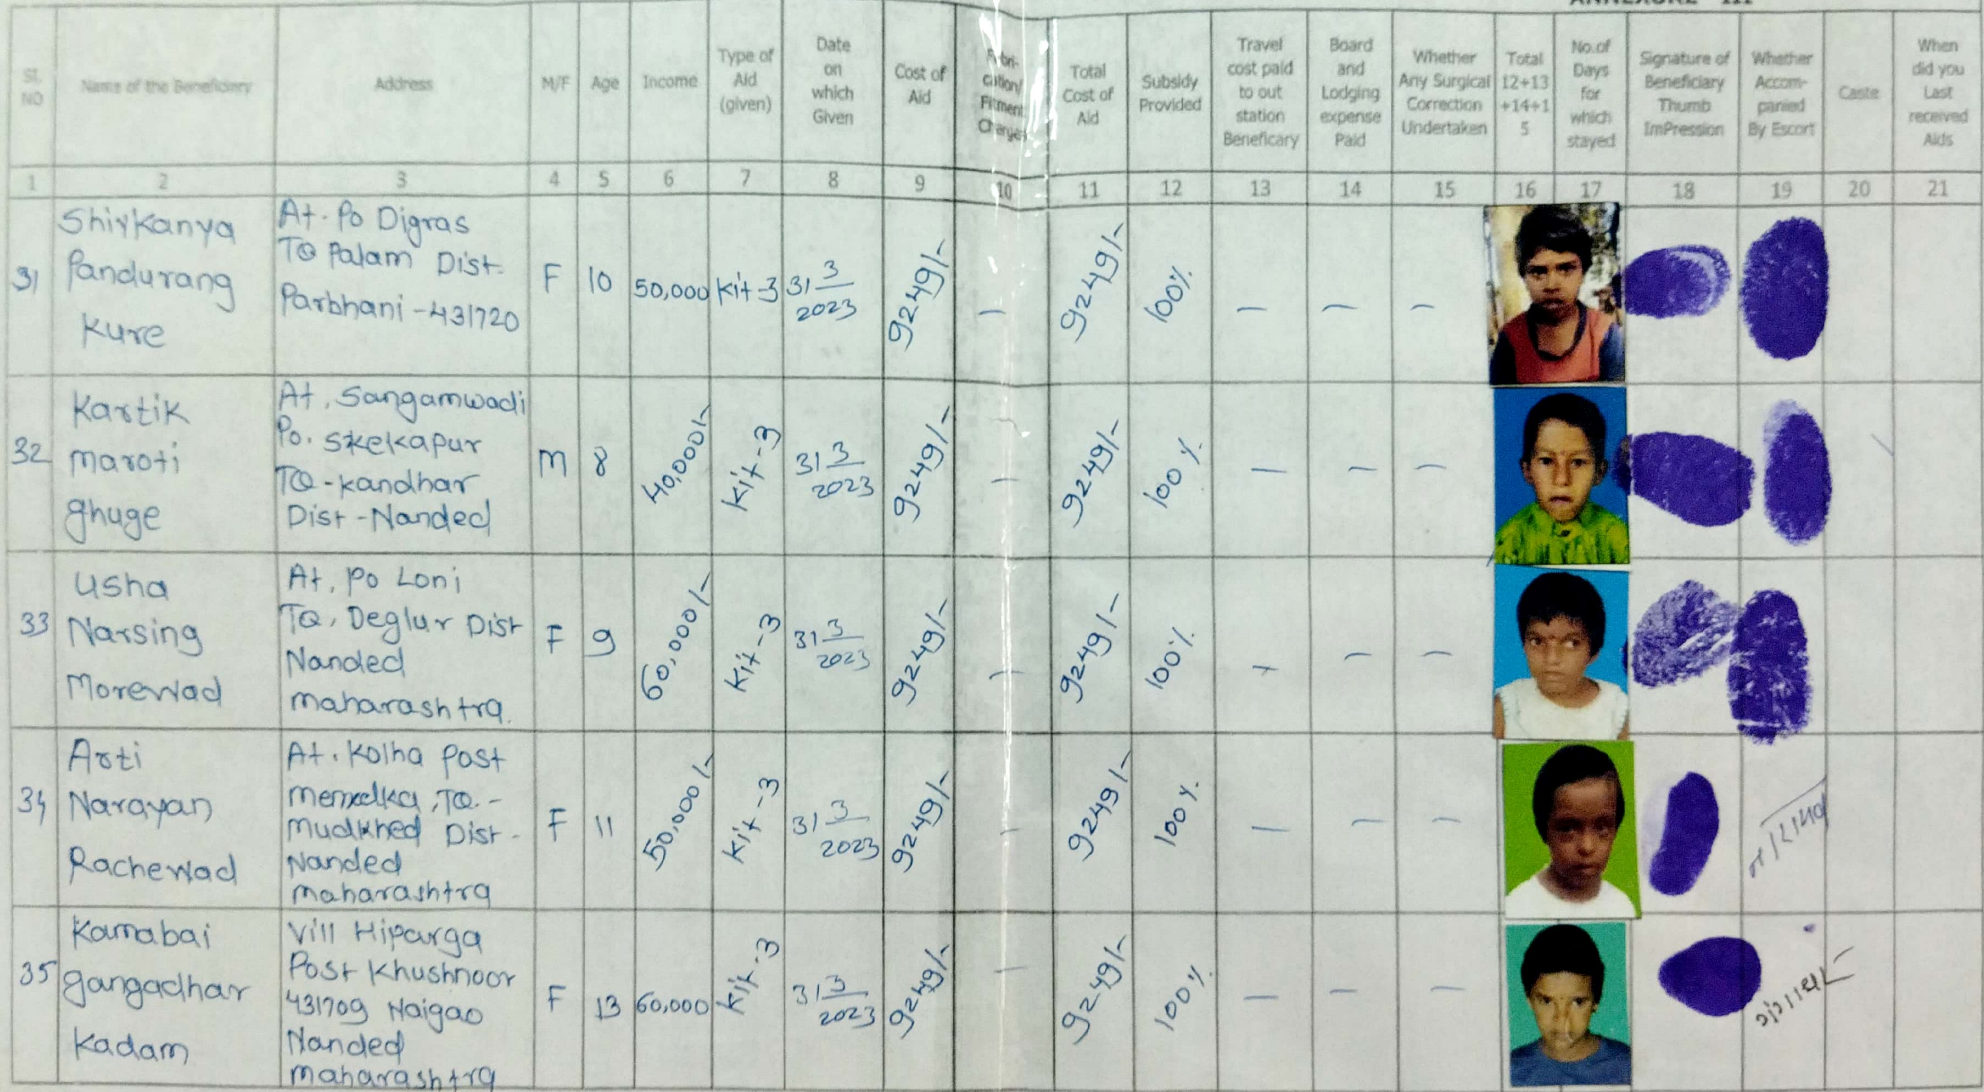 ANNEXURE - III
Sl. NO
Name of the Beneficiary
Address
M/F
Age
Income
Type of Aid (given)
Date on which Given
Cost of Aid
Fabrication/ Fitment Charges
Total Cost of Aid
Subsidy Provided
Travel cost paid to out station Beneficary
Board and Lodging expense Paid
Whether Any Surgical Correction Undertaken
Total 12+13+14+15
No.of Days for which stayed
Signature of Beneficiary Thumb ImPression
Whether Accompanied By Escort
Caste
When did you Last received Aids
1 2 3 4 5 6 7 8 9 10 11 12 13 14 15 16 17 18 19 20 21
31
Shivkanya
Pandurang
Kure
At. Po Digras
TQ Palam Dist-
Parbhani - 431720
F 10 50,000 Kit-3 31 3/2023 9249/- — 9249/- 100% — — —
32
Kartik
maroti
ghuge
At. Sangamwadi
Po. Skekapur
TQ - kandhar
Dist - Nanded
M 8 40,000/- Kit-3 31 3/2023 9249/- — 9249/- 100% — — —
33
Usha
Narsing
Morewad
At, Po Loni
TQ, Deglur Dist
Nanded
maharashtra.
F 9 60,000/- Kit-3 31 3/2023 9249/- — 9249/- 100% — — —
34
Arti
Narayan
Rachewad
At. Kolha Post
TQ.-
mudkhed Dist-
Nanded
maharashtra
F 11 50,000/- Kit-3 31 3/2023 9249/- — 9249/- 100% — — —
35
Kamabai
gangadhar
Kadam
Vill Hiparga
Post Khushnoor
431709 Naigao
Nanded
maharashtra
F 13 60,000 Kit-3 31 3/2023 9249/- — 9249/- 100% — — —